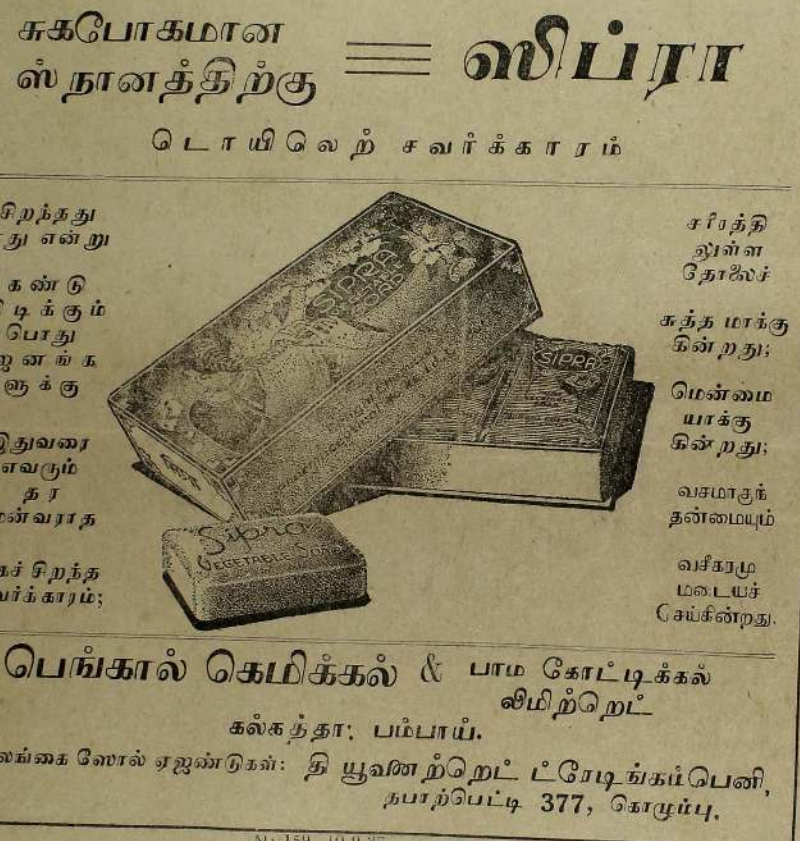 சுகபோகமான
ஸ்நானத்திற்கு
ஸிப்ரா
டொயிலெற் சவர்க்காரம்
சிறந்தது
என்று
கண்டு
டிக்கும்
பொது
ஜனங்க
ளுக்கு
இதுவரை
எவரும்
தர
முன்வராத
சிறந்த
சவர்க்காரம்;
SIPRA
SIPRA
Sipra
VEGETABLE SOAP
சரீரத்தி
லுள்ள
தோலைச்
சுத்தமாக்கு
கின்றது;
மென்மை
யாக்கு
கின்றது;
வசமாகுந்
தன்மையும்
வசீகரமு
மடையச்
செய்கின்றது.
பெங்கால் கெமிக்கல் & பாம கோட்டிக்கல்
லிமிற்றெட்
கல்கத்தா: பம்பாய்.
லங்கை ஸோல் ஏஜண்டுகள்: தி யூனைற்றெட் ட்ரேடிங்கம்பெனி,
தபாற்பெட்டி 377, கொழும்பு.